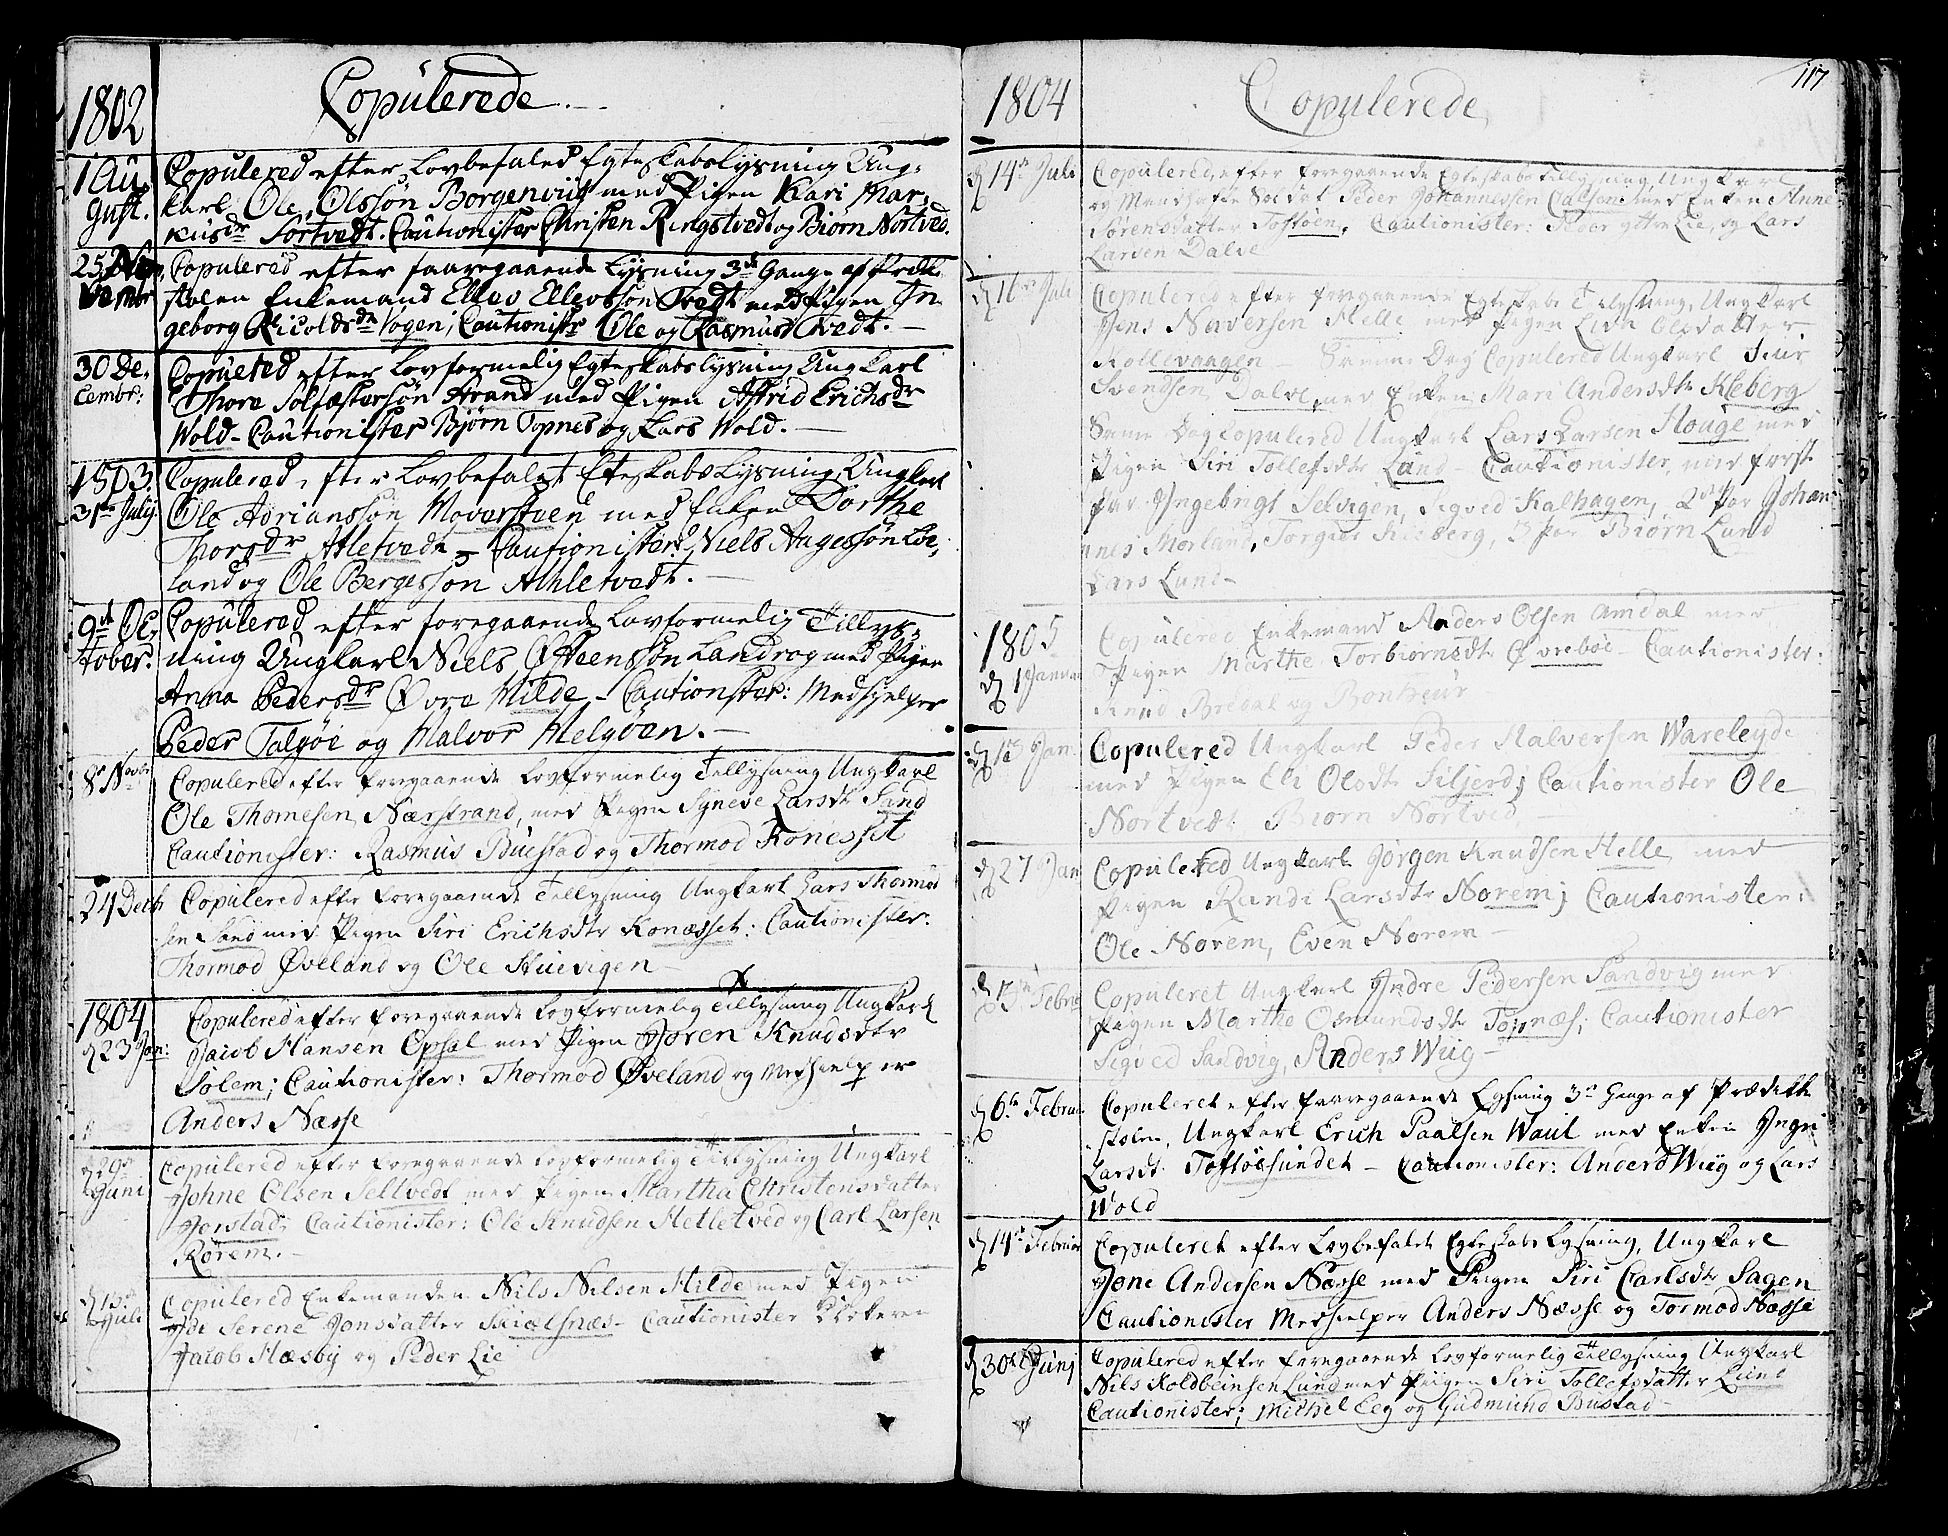 1802
Copulerede.
1 Au
gust.
Copulered efter Lovbefaled Egteskabslysning Ung-
karl Ole Olssøn Borgenviig med Pigen Kari Mar-
kusdr Sortvedt. Cautionister Christen Ringstvedt og Biørn Nortved.
25 No
vembr
Copulered efter faaregaaende Lysning 3de Gange af Prædike
stolen Enkemand Ellev Ellevssøn Tvedt med Pigen In
geborg Nicoldsdr Vogen; Cautionistr Ole og Rasmus Tvedt.
30 De-
cembr:
Copulered efter Lovformelig Egteskabslysning Ungkarl
Thore Solfæstersøn Strand med Pigen Astrid Erichsdr
Wold - Cautionister Bjørn Topnes og Lars Wold.
1803.
31te July
Copulered efter Lovbefalet Eteskabs Lysning Ungkarl
Ole Adrianssøn Moverstuen med Enken Dorthe
Thorsdr Atletvedt - Cautionister Niels Aagessøn Loe-
land og Ole Bergessøn Athletvedt.
9de Oc-
tober.
Copulered efter foregaaende Lovformelig Tillys-
ning Ungkarl Niels Østeenssøn Landrog med Pigen
Anna Pedersdr Øvre Hilde - Cautionster: Medhjelper
Peder Talgøe og Halvor Helgøen.
8de Novbr
Copulered efter foregaaende Lovformelig Tillysning Ungkarl
Ole Thomesen Nærstrand, med Pigen Syneve Larsdtr Sand
Cautionister: Rasmus Buestad og Thormod Konesset
24 Decb
Copulered efter foregaaende Tillysning Ungkarl Lars Thormod
sen Sand med Pigen Siri Erichsdtr Konæsset: Cautionister:
Thormod Øveland og Ole Stuevigen
1804
d 23 Jan:
Copulered efter foregaaende Lovformelig Tillysning Ungkarl
Jacob Hansen Opsal med Pigen Joren Knudsdtr
Solem; Cautionister: Thormod Øveland og Medhielper
Anders Næsse
d 29de
Juni
Copulered efter foregaaende Lovformelig Tillysning Ungkarl
Johne Olsen Seltvedt med Pigen Martha Christensdatter
Jorstad; Cautionister: Ole Knudsen Hetletved og Carl Larsen
Rørem.
d 13de
Juli
Copulered Enkemanden Nils Nilsen Hilde med Pigen
Serene Jonsdatter Skiælsnæs - Cautionister Klokeren
Jacob Næsby og Peder Lie
1804
Copulerede
117
d 14de Juli
Copulered, efter foregaaende Egteskabs Tillysning, Ungkarl
og Mandhafte Soldat Peder Johannessen Dalsen med Enken Anne
Sørensdatter Toftøen, Cautionister: Peder yttre Lie, og Lars
Larsen Dalve
d 16de Juli
Copulered efter foregaaende Egteskabs Tilysning, Ungkarl
Jens Naversen Helle med Pigen Lisa Olsdatter
Kollevaagen Samme Dag Copulered Ungkarl Siur
Svendsen Dalve, med Enken Mari Andersdtr Kleberg
Samme Dag Copulered Ungkarl Lars Larsen Houge med
Pigen Siri Tollefsdtr Lund Cautionister, med første
Par Yngebrigt Selvigen, Sigved Kalhagen, 2det Par Johan-
nes Morland, Torger Kleberg, 3 Par Biørn Lund
Lars Lund -
1805
d 1 Januar
Copulered Enkemand Anders Olsen Amdal med
Pigen Marthe Torbiørnsdtr Øvrebøe - Cautionister:
Knud Bredal og Bonheur
d 1te Jan.
Copulered Ungkarl Peder Halversen Wareleyde
med Pigen Eli Olsdtr Siljord; Cautionister Ole
Nortvedt Biørn Nortved,
d 27 Jan
Copulered Ungkarl Jørgen Knudsen Helle med
Pigen Randi Larsdtr Norem; Cautionister:
Ole Norem, Even Norem -
Febru
Copuleret Ungkarl Andre Pedersen Sandvig med
Pigen Marthe Osmundsdtr Topnæs; Cautionister
Sigved Sandvig, Anders Wiig -
d 6te Februa
Copuleret efter faaregaaende Lysning 3de Gange af Prædike
stolen, Ungkarl Erich Paalsen Waul med Enken Yngri
Larsdt Toftøesundet - Cautionister: Anders Wiig og Lars
Wold
d 14de Februar
Copuleret efter Lovbefalet Egteskabs Lysning, Ungkarl
Jone Andersen Næsse med Pigen Siri Carlsdtr Sagen
Cautionister Medhielper Anders Næsse og Tormod Næsse
d 30te Junj
Copulered efter foregaaende Lovformelig Tillysning Ungkarl
Nils Koldbeinsen Lund med Pigen Siri Tollefsdatter Lund
Cautionister; Michel Eeg og Gudmund Bustad -